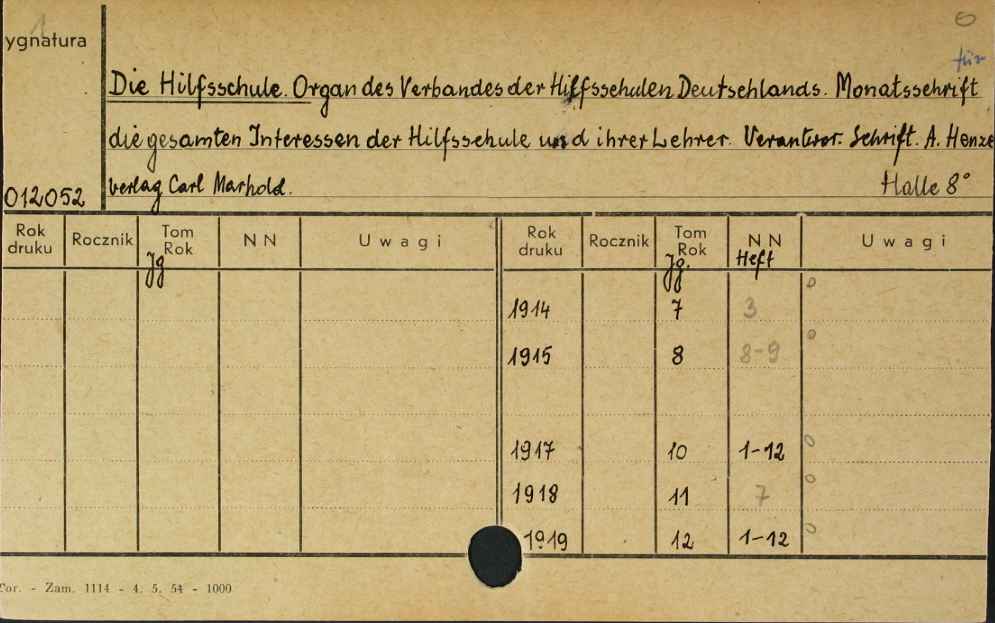 1 6
ygnatura
für
Die Hilfsschule. Organ des Verbandes der Hilfsschulen Deutschlands. Monatsschrift
die gesamten Interessen der Hilfsschule und ihrer Lehrer. Verantwor. Schrift. A. Henze
012052 verlag Carl Marhold. Halle 8°
Rok druku Rocznik Tom Rok NN Uwagi Rok druku Rocznik Tom Rok NN Uwagi
Jg Jg. Heft
1914 7 3 0
1915 8 8-9 0
1917 10 1-12 0
1918 11 7 0
1919 12 1-12 0
Tor. - Zam. 1114 - 4. 5. 54 - 1000